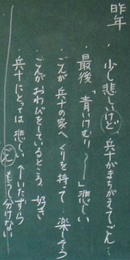 昨年
・少し悲しいけど兵十がまちがえてごん…
最後「青いけむり〜」悲しい
・ごんが兵十の家へくりを持って 楽しそう
・ごんがおわびをしているところ 好き
・兵十にとっては悲しい ↑いたずら
もう 分けない